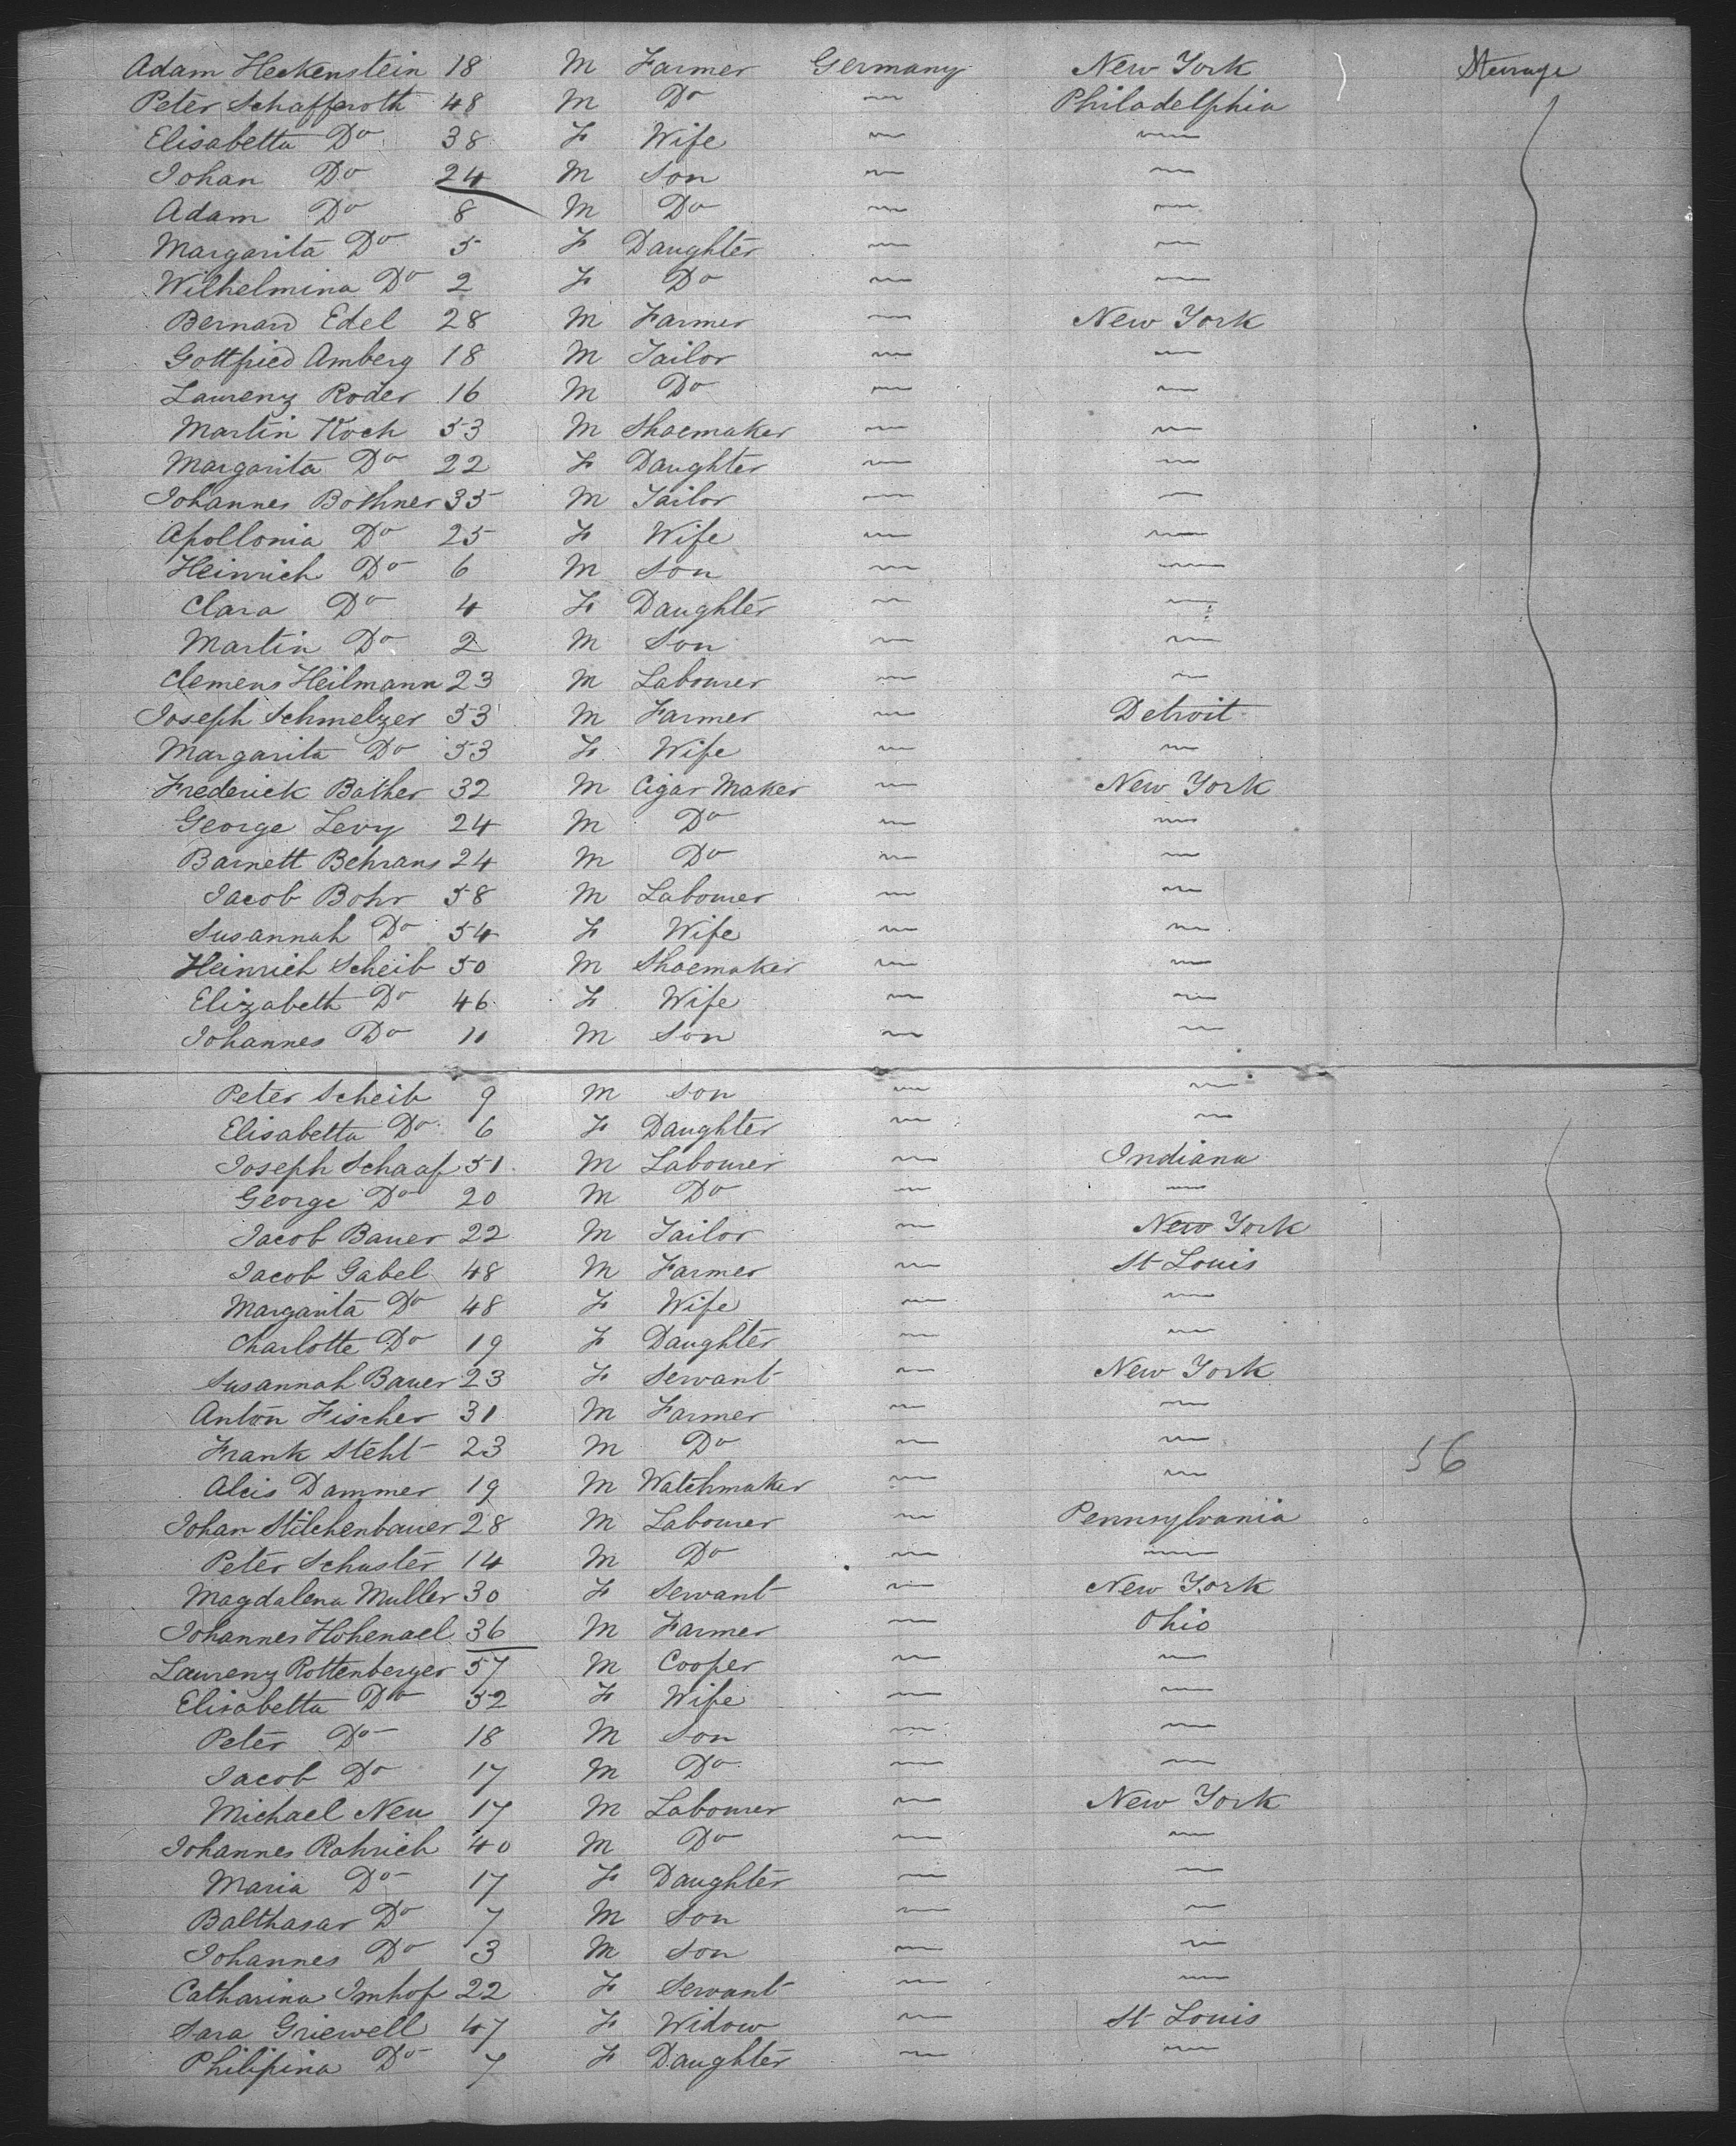 Adam Heckenstein 18 M Farmer Germany New York Steerage
Peter Schaffroth 48 M Do " Philadelphia
Elisabetta Do 38 F Wife " "
Johan Do 24 M Son " "
Adam Do 8 M Do " "
Margarita Do 5 F Daughter " "
Wilhelmina Do 2 F Do " "
Bernard Edel 28 M Farmer " New York
Gottfried Amberg 18 M Tailor " "
Laurenz Roder 16 M Do " "
Martin Koch 53 M Shoemaker " "
Margarita Do 22 F Daughter " "
Johannes Bothner 35 M Tailor " "
Apollonia Do 25 F Wife " "
Heinrich Do 6 M Son " "
Clara Do 4 F Daughter " "
Martin Do 2 M Son " "
Clemens Heilmann 23 M Labourer " "
Joseph Schmelzer 53 M Farmer " Detroit
Margarita Do 53 F Wife " "
Frederick Bather 32 M Cigar Maker " New York
George Levy 24 M Do " "
Barnett Behrans 24 M Do " "
Jacob Bohr 58 M Labourer " "
Susannah Do 54 F Wife " "
Heinrich Scheib 50 M Shoemaker " "
Elizabeth Do 46 F Wife " "
Johannes Do 11 M Son " "
Peter Scheib 9 M Son " "
Elisabetta Do 6 F Daughter " "
Joseph Schaaf 51 M Labourer " Indiana
George Do 20 M Do " "
Jacob Bauer 22 M Tailor " New York
Jacob Gabel 48 M Farmer " St Louis
Margarita Do 48 F Wife " "
Charlotte Do 19 F Daughter " "
Susannah Bauer 23 F Servant " New York
Anton Fischer 31 M Farmer " "
Frank Stehl 23 M Do " " 56
Alois Dammer 19 M Watchmaker " "
Johan Stilchenbauer 28 M Labourer " Pennsylvania
Peter Schuster 14 M Do " "
Magdalena Muller 30 F Servant " New York
Johannes Hohenael 36 M Farmer " Ohio
Laurenz Rottenberger 57 M Cooper " "
Elisabetta Do 52 F Wife " "
Peter Do 18 M Son " "
Jacob Do 17 M Do " "
Michael Neu 17 M Labourer " New York
Johannes Rohrich 40 M Do " "
Maria Do 17 F Daughter " "
Balthasar Do 7 M Son " "
Johannes Do 3 M Son " "
Catharina Imhof 22 F Servant " "
Sara Griewell 47 F Widow " St Louis
Philipina Do 7 F Daughter " "